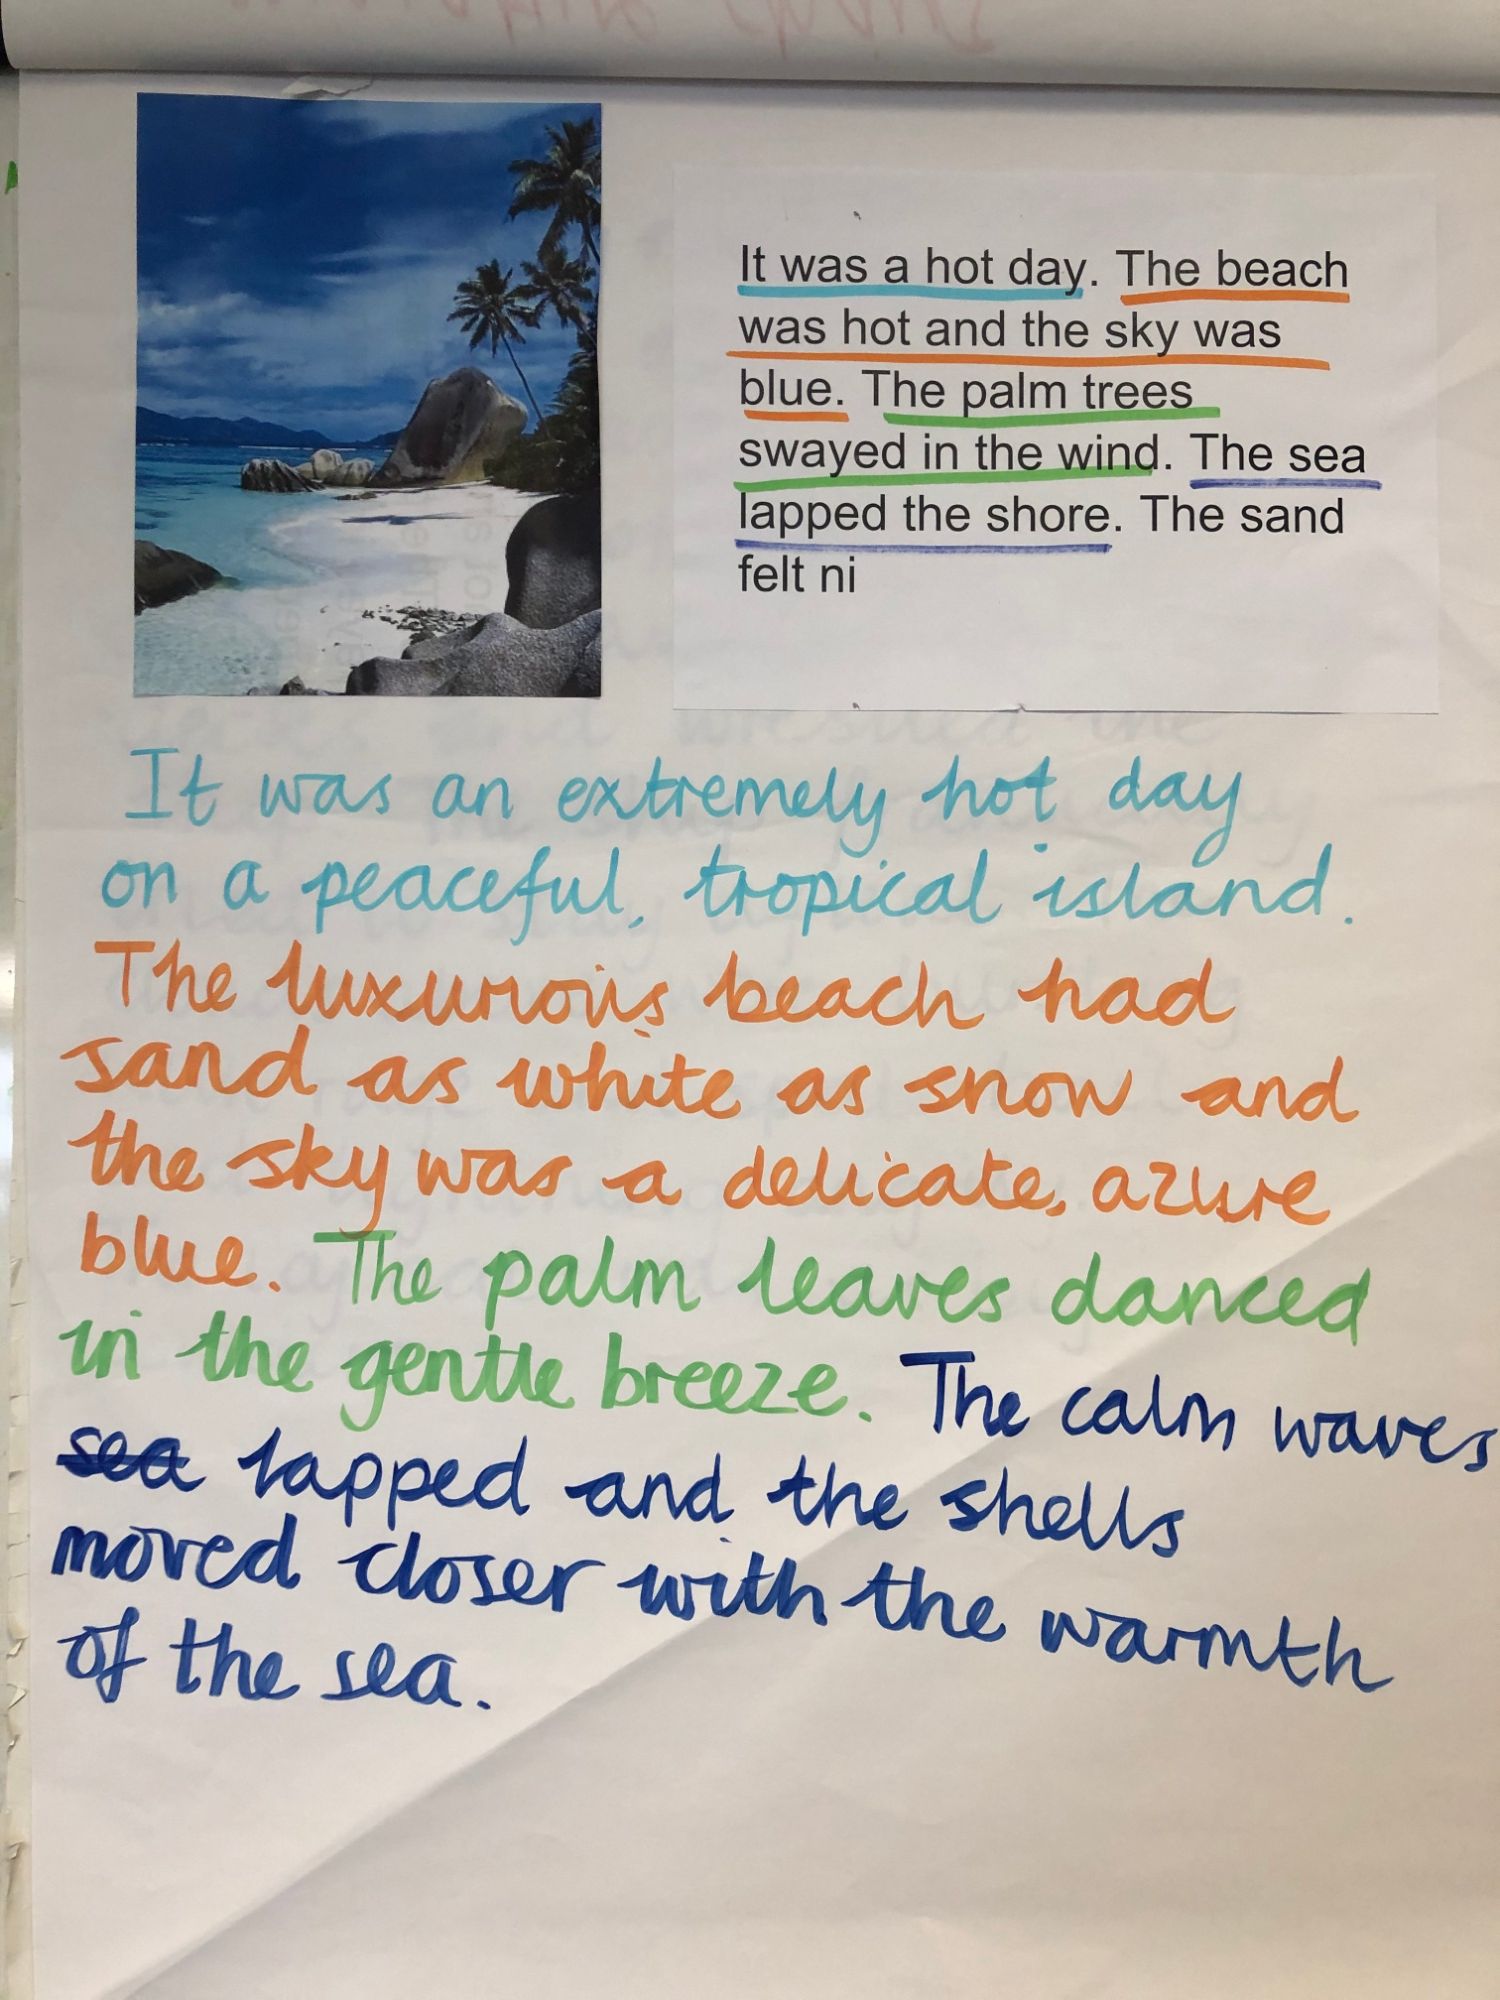 It was a hot day. The beach
was hot and the sky was
blue. The palm trees
swayed in the wind. The sea
lapped the shore. The sand
felt ni
It was an extremely hot day
on a peaceful, tropical island.
The luxurious beach had
sand as white as snow and
the sky was a delicate, azure
blue. The palm leaves danced
in the gentle breeze. The calm waves
sea lapped and the shells
moved closer with the warmth
of the sea.